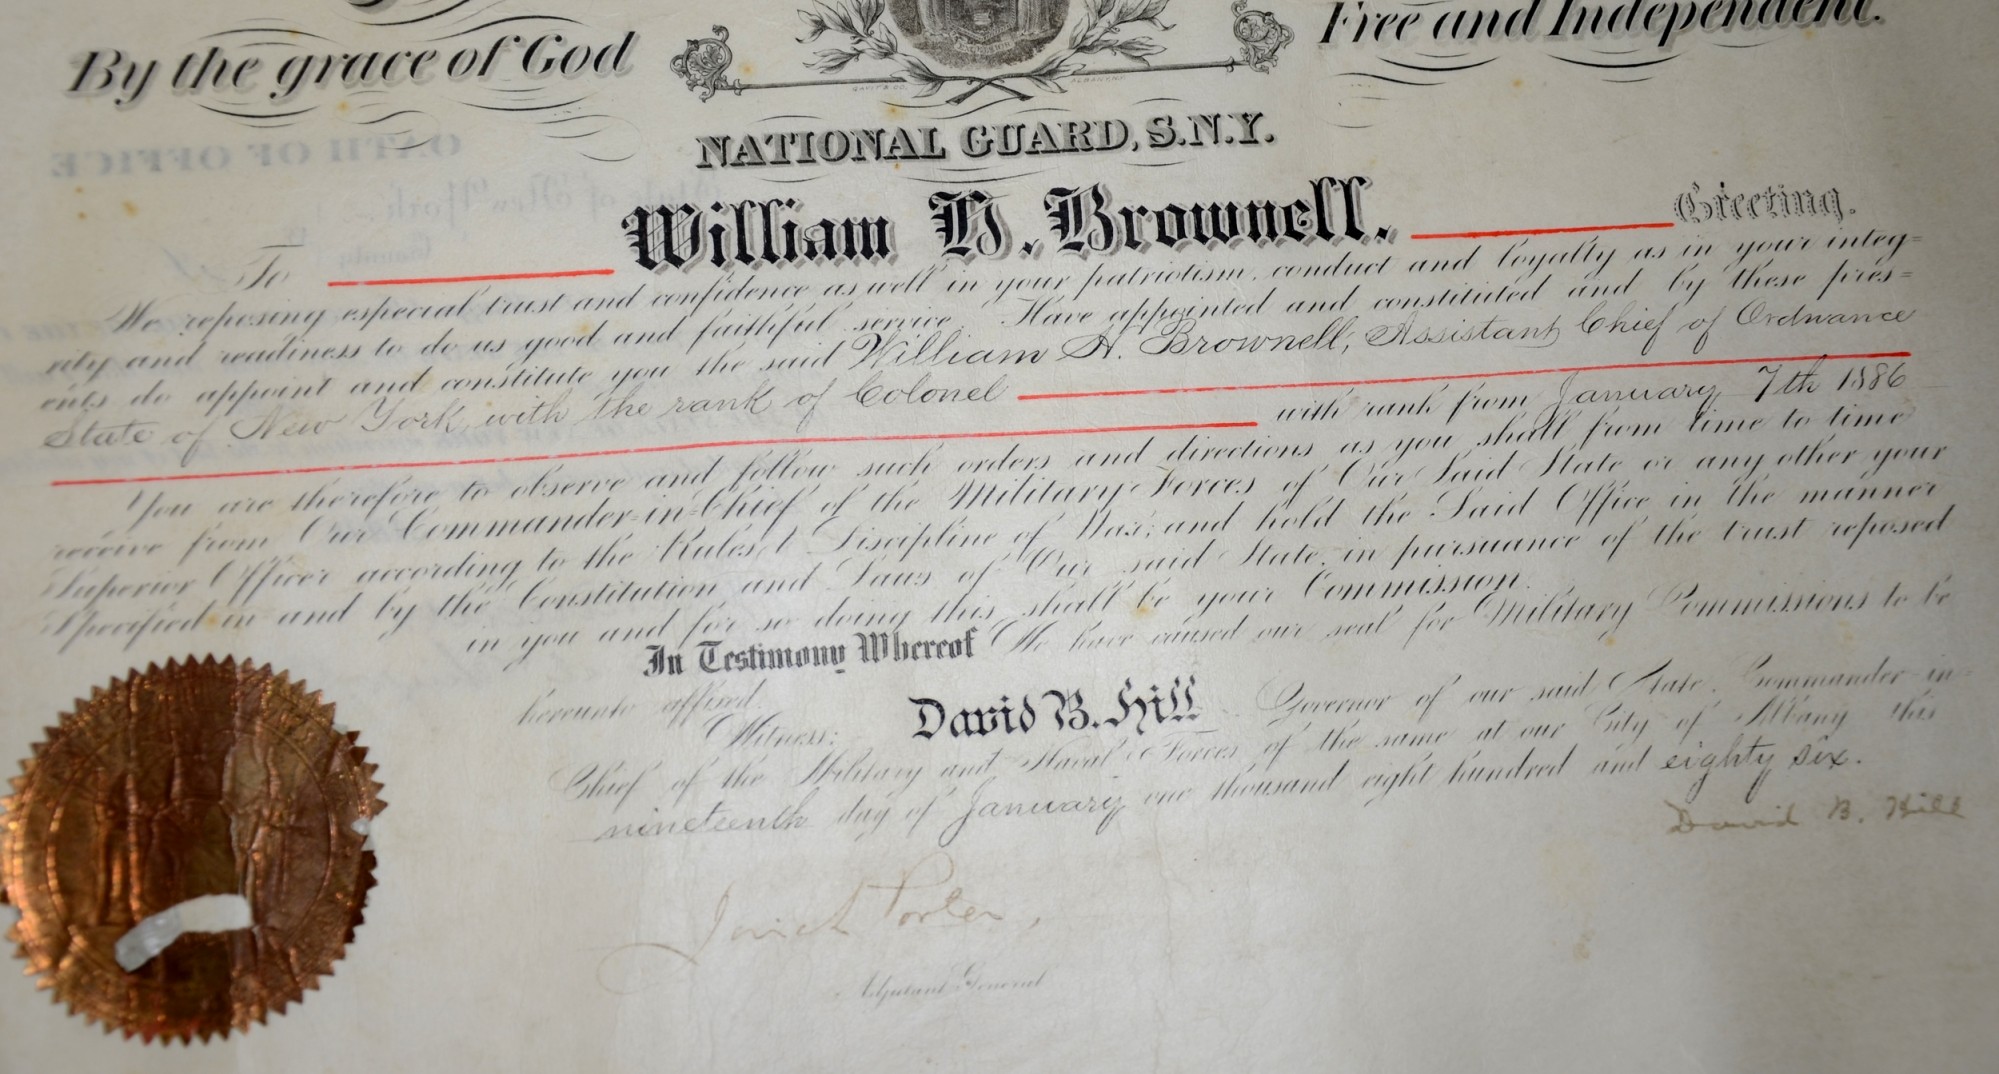 By the grace of God Free and Independent.
GAVIT & CO. ALBANY N.Y.
NATIONAL GUARD, S.N.Y.
To William H. Brownell. Greeting.
We reposing especial trust and confidence as well in your patriotism, conduct and loyalty as in your integ=
rity and readiness to do us good and faithful service Have appointed and constituted and by these pres=
ents do appoint and constitute you the said William H. Brownell, Assistant Chief of Ordnance
State of New York, with the rank of Colonel with rank from January 7th 1886
You are therefore to observe and follow such orders and directions as you shall from time to time
receive from Our Commander=in=Chief of the Military Forces of Our Said State or any other your
Superior Officer according to the Rules & Discipline of War; and hold the Said Office in the manner
Specified in and by the Constitution and Laws of Our said State, in pursuance of the trust reposed
in you and for so doing this shall be your Commission.
In Testimony Whereof We have caused our seal for Military Commissions to be
hereunto affixed.
Witness: David B. Hill Governor of our said State, Commander-in-
Chief of the Military and Naval Forces of the same at our City of Albany this
nineteenth day of January one thousand eight hundred and eighty six.
David B. Hill
Porter,
Adjutant General
OATH OF OFFICE
State of New York
County